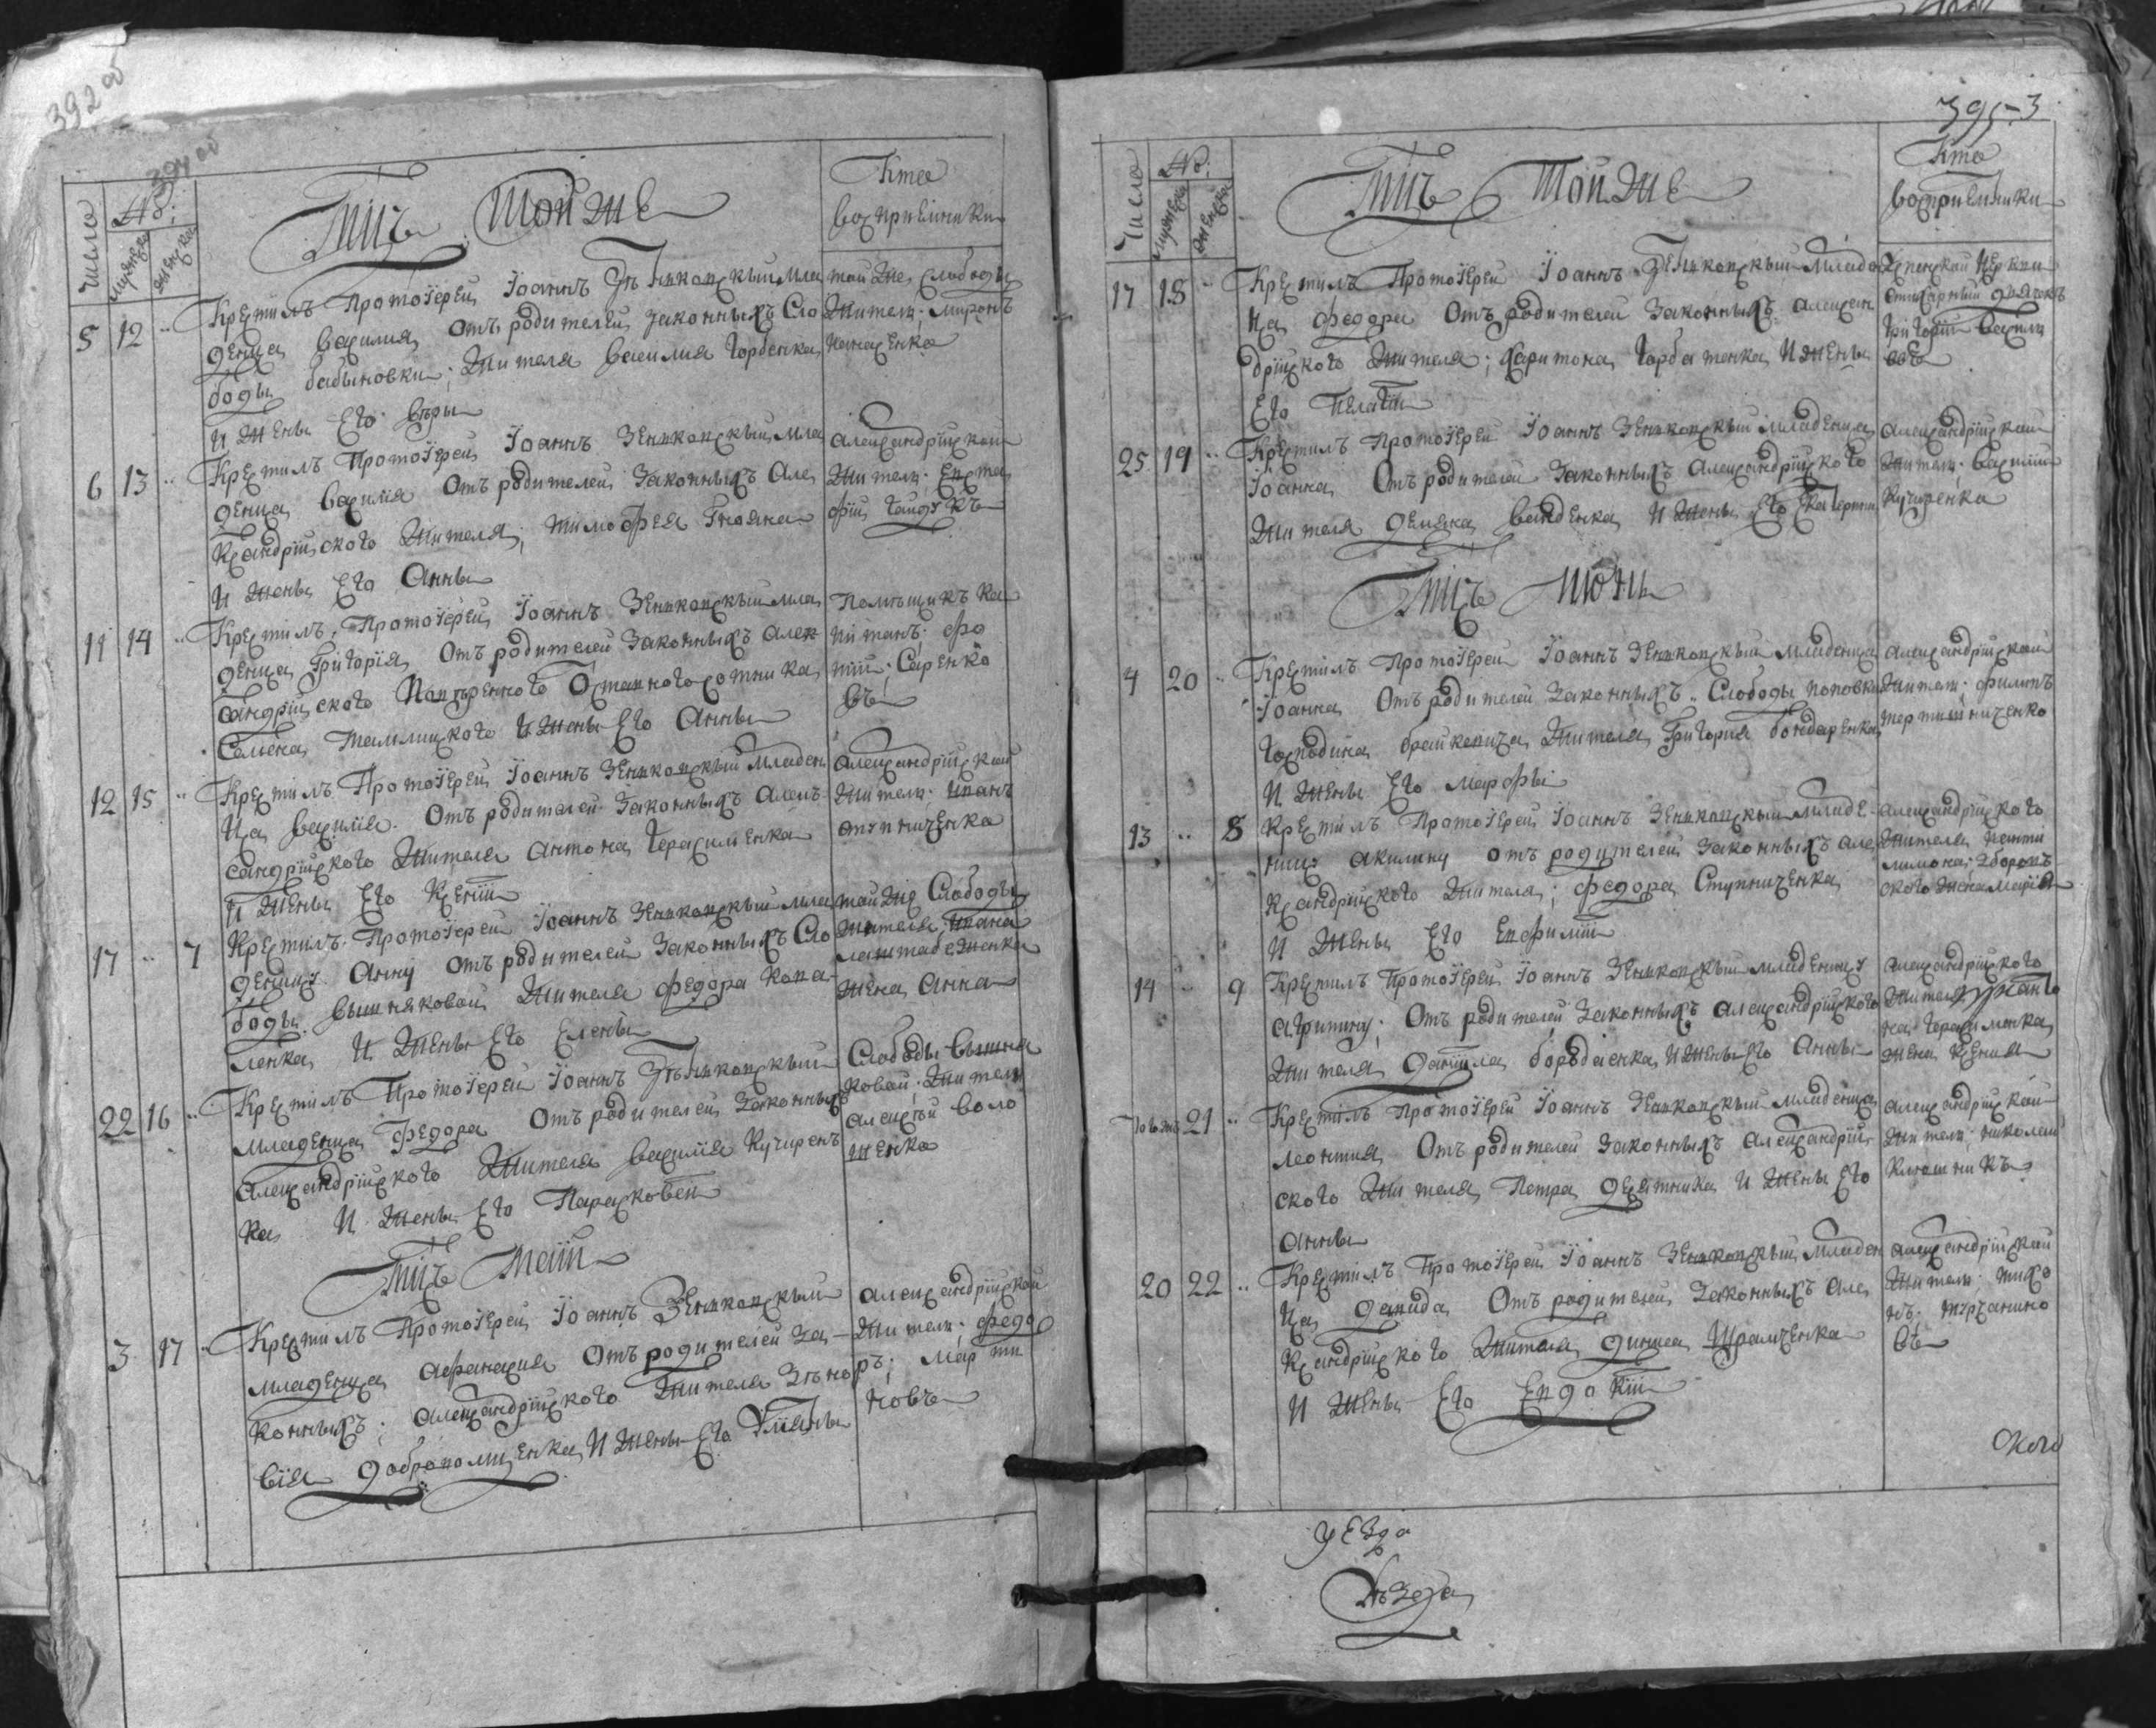 392 об
394 об
Число
№:
мужеска
женска
Мцъ Тойже
Кто
восприемники
5 12 Крестилъ Протоіерей Іоаннъ Зѣньковскый мла
денца василия Отъ родителей законныхъ Сло
боды бабыновки; Жителя василия Горбенка
И Жены Его вѣры
той Же слободы
Житель; миронъ
панасенко
6 13 Крестилъ Протоіерей Іоаннъ Зеньковскый мла
денца василія Отъ родителей Законныхъ Але
ксандрійского Жителя; тимофея Гнояка
И Жены Его Анны
александрійскои
Житель Евста
фій гайдукъ
11 14 Крестилъ Протоіерей Іоаннъ Зеньковскый мла
денца Григорія Отъ родителей Законныхъ Алек
сандрійского Сотника
Семена И Жены Его Анны
Помѣщикъ ка
питанъ; фо
тій; Саренко
въ
12 15 Крестилъ Протоіерей Іоаннъ Зеньковскый Младен
ца василія Отъ родителей Законныхъ Алекъ
сандрійского Жителя антона Герасименка
И Жены Его Ксеніи
александрійскои
Житель; Иванъ
ступниченко
17 7 Крестилъ Протоіерей Іоаннъ Зеньковскый мла
деницу Анну Отъ родителей Законныхъ Сло
боды вышняковои Жителя федора Кова
ленка И Жены Его Елены
той Же Слободы
Жителя Ивана
жена Анна
22 16 Крестилъ Протоіерей Іоаннъ Зѣньковскый
младенца Федора Отъ родителей Законныхъ
александрійского Жителя василія Кучеренъ
ка И Жены Его Парасковеи
Слободы вышня
ковои; Житель
алексѣй воло
шенко
Мцъ Маіи
3 17 Крестилъ Протоіерей Іоаннъ Зеньковскый
младенца афанасия Отъ родителей За
конныхъ; александрійского Жителя Зѣно
вія И Жены Его Уліяны
александрійскои
Житель; федо
ръ; марти
новъ
395 3
Число
№:
мужеска
женска
Мцъ Тойже
Кто
восприемники
17 18 Крестилъ Протоіерей Іоаннъ Зеньковскый Младе
нца федора Отъ родителей Законныхъ алексан
дрійского Жителя; харитона Горбатенка И Жены
Его Пелагіи
Успенской Церкви
стихарный дьячокъ
Григорій василе
вичъ
25 19 Крестилъ Протоіерей Іоаннъ Зеньковскый младенца
Іоанна Отъ родителей Законныхъ александрійского
Жителя демяна И Жены Его Катерины
александрійскои
Житель; василій
Кучеренко
Мцъ Июнь
4 20 Крестилъ Протоіерей Іоаннъ Зеньковскый младенца
Іоанна Отъ родителей Законныхъ Слободы поповка
Господина Жителя Григорія бондаренка
И Жены Его марфы
александрійскои
Житель; филипъ
тертишниченко
13 8 Крестилъ Протоіерей Іоаннъ Зеньковскый младе
ницу акилину отъ родителей Законныхъ але
ксандрійского Жителя; федора Ступниченка
И Жены Его Евфиміи
александрійского
Жителя панти
лимона; зборовъ
ского жена марія
14 9 Крестилъ Протоіерей Іоаннъ Зеньковскый младеницу
агрипину; Отъ родителей Законныхъ александрійского
Жителя даніила И Жены Его Анны
александрійского
Жителя
Герасименка
Жена Ксенія
21 Крестилъ Протоіерей Іоаннъ Зеньковскый младенца
леонтия Отъ родителей Законныхъ александрій
ского Жителя Петра десятника И Жены Его
Анны
александрійскои
Житель; николай
Ключникъ
20 22 Крестилъ Протоіерей Іоаннъ Зеньковскый младен
ца давида Отъ родителей Законныхъ але
ксандрійского Жителя дениса Шрамченка
И Жены Его Евдокіи
александрійскои
Житель; тихо
нъ; турчанино
въ
уезда